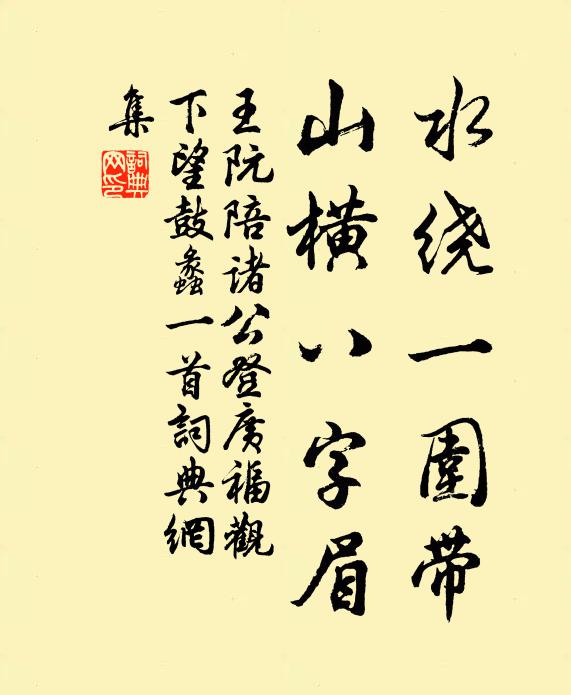 水绕一圍带
山横八字眉
王阮陪诸公登廣福觀
下望鼓蠡一首詞典網
集
詞典
网印